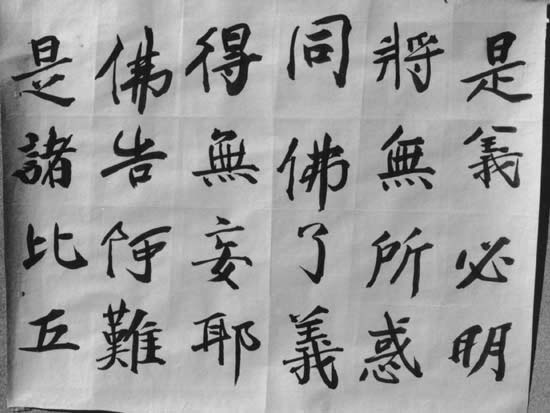 是義必明
將無所惑
同佛了義
得無妄耶
佛告阿難
是諸比丘